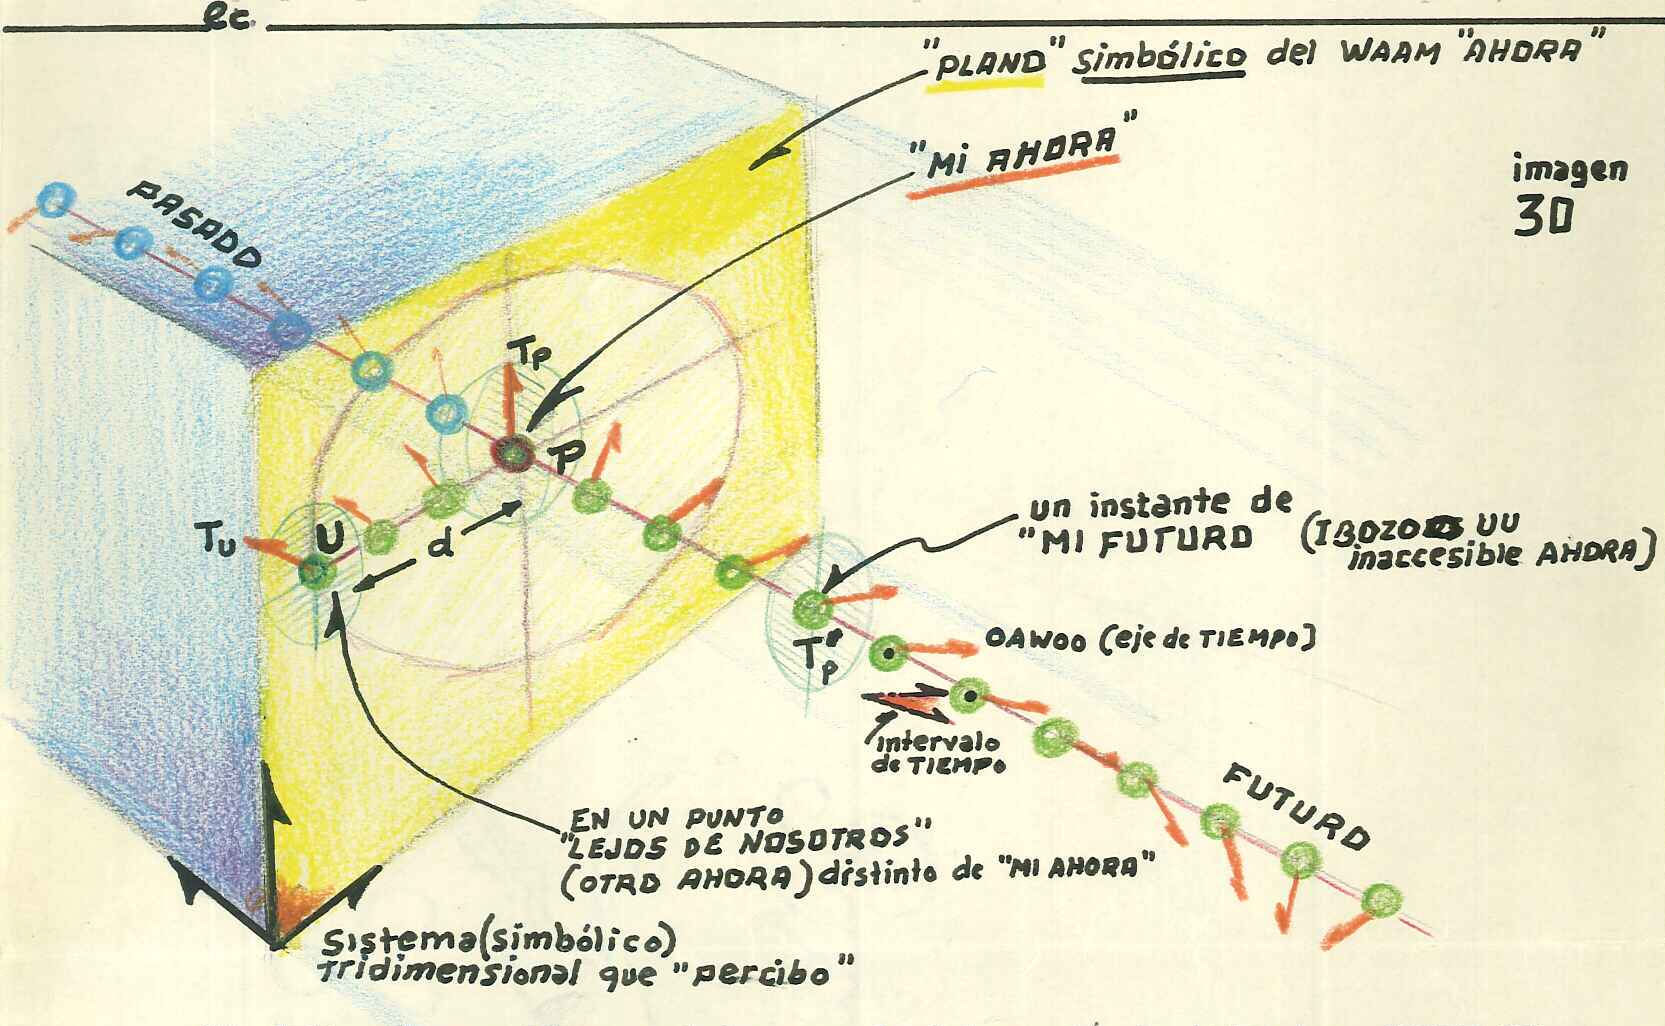 ec.
"PLANO" simbólico del WAAM "AHORA"
"Mi AHORA"
imagen
30
PASADO
Tp
P
Tu
U
d
un instante de
"MI FUTURO
UU
inaccesible AHORA)
Tp*
OAWOO (eje de TIEMPO)
intervalo
de TIEMPO
FUTURO
EN UN PUNTO
"LEJOS DE NOSOTROS"
(OTRO AHORA) distinto de "MI AHORA"
Sistema (simbólico)
tridimensional que "percibo"